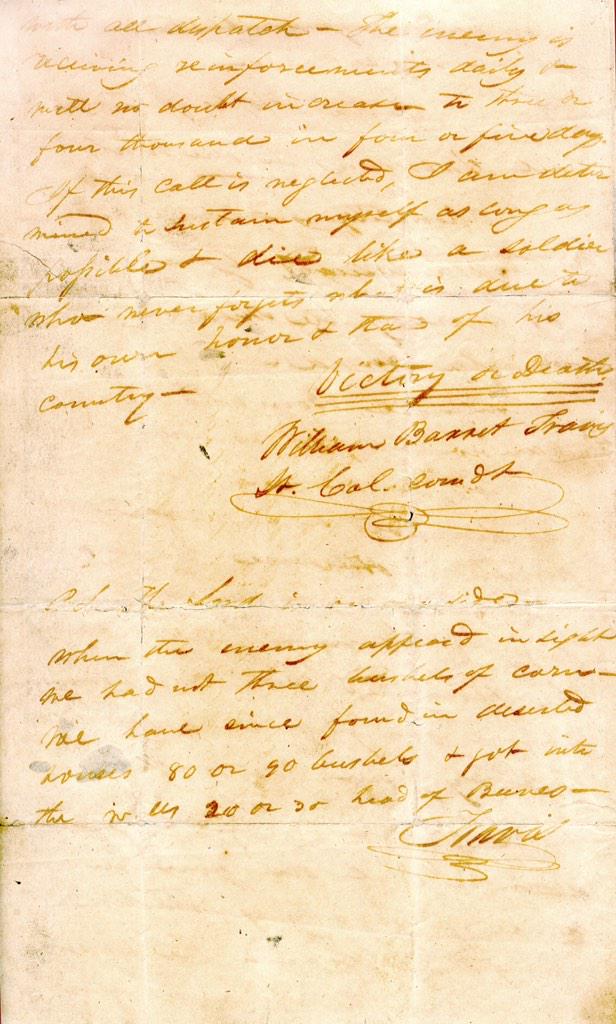 with all dispatch – The enemy is
receiving reinforcements daily &
will no doubt increase to three or
four thousand in four or five days.
If this call is neglected, I am deter
mined to sustain myself as long as
possible & die like a soldier
who never forgets what is due to
his own honor & that of his
country –
Victory or Death
William Barret Travis
Lt. Col. comdt
P.S. The Lord is on our side –
When the enemy appeard in sight
we had not three bushels of corn –
We have since found in deserted
houses 80 or 90 bushels & got into
the walls 20 or 30 head of Beeves –
Travis